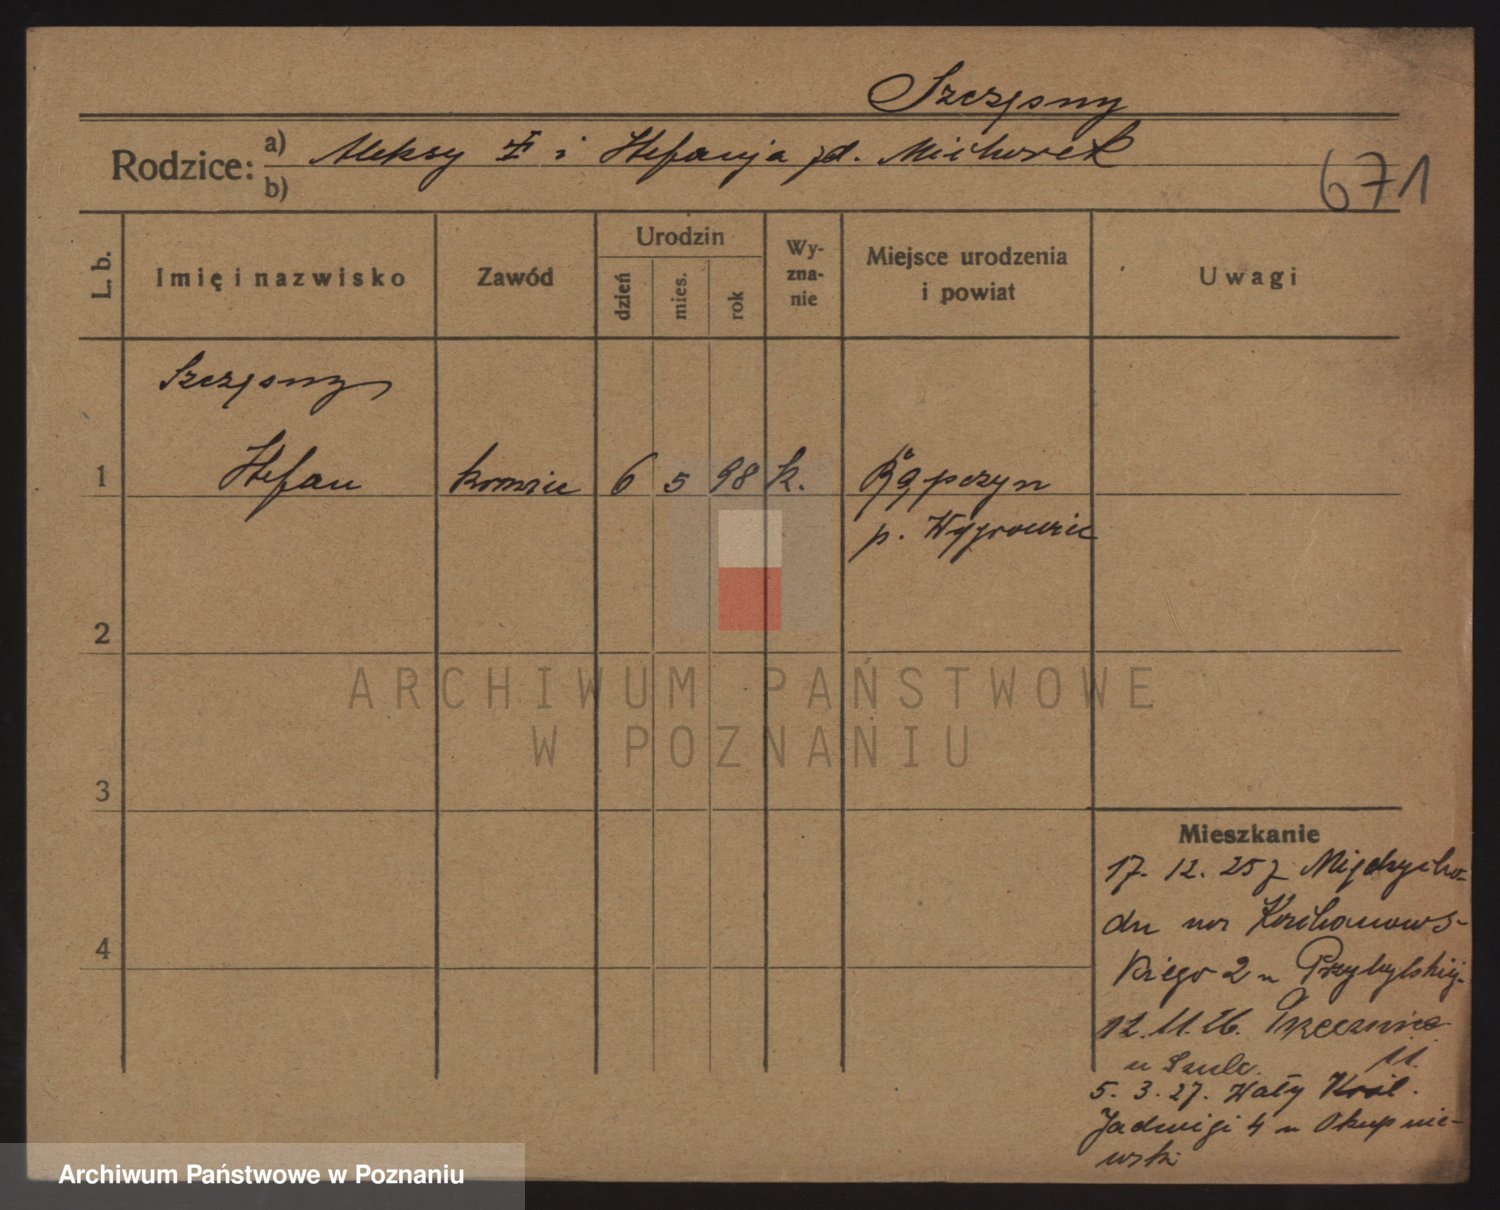 Szczęsny
Rodzice:
a) Aleksy i Stefanja zd. Michorek
b)
671
L. b.
Imię i nazwisko
Zawód
Urodzin
dzień
mies.
rok
Wy-
zna-
nie
Miejsce urodzenia
i powiat
Uwagi
Szczęsny
1 Stefan krawiec 6 5 98 k. Rąpczyn
p. Wągrowiec
2
3
4
ARCHIWUM PAŃSTWOWE
W POZNANIU
Mieszkanie
17. 12. 25 z Międzycho-
du Kochanows-
kiego 2 u Przybylskiej.
12. 11. 26. Przecznica
u Szulc. 11.
5. 3. 27. Wały Król.
Jadwigi 4 u Okupnie-
wski
Archiwum Państwowe w Poznaniu